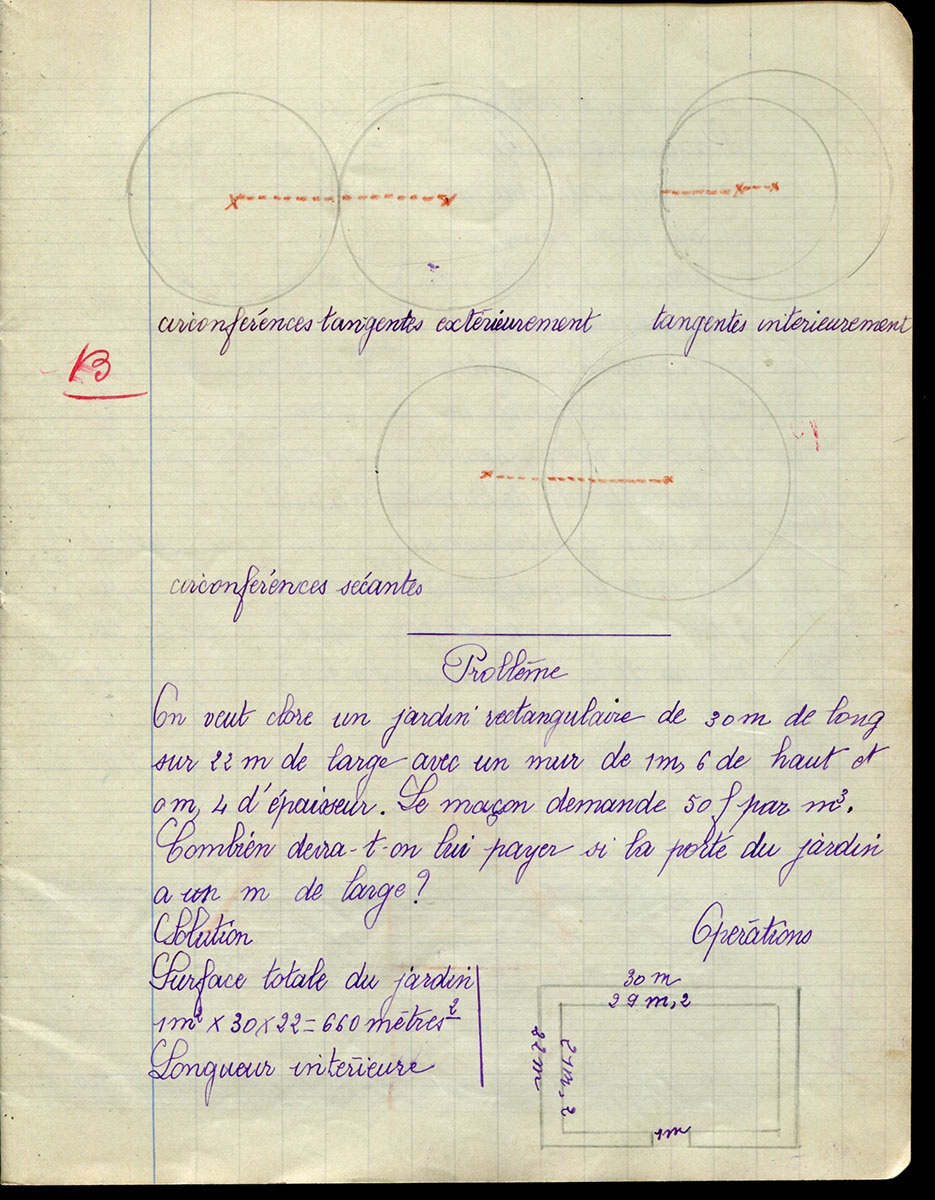 circonférences tangentes extérieurement
tangentes intérieurement
B
circonférences sécantes
Problème
On veut clore un jardin rectangulaire de 30m de long
sur 22 m de large avec un mur de 1m,6 de haut et
0m,4 d'épaisseur. Le maçon demande 50f par m³.
Combien devra-t-on lui payer si la porte du jardin
a un m de large?
Solution
Opérations
Surface totale du jardin
1m² × 30 × 22 = 660 mètres²
Longueur intérieure
30 m
29 m,2
22 m
21 m,2
1m